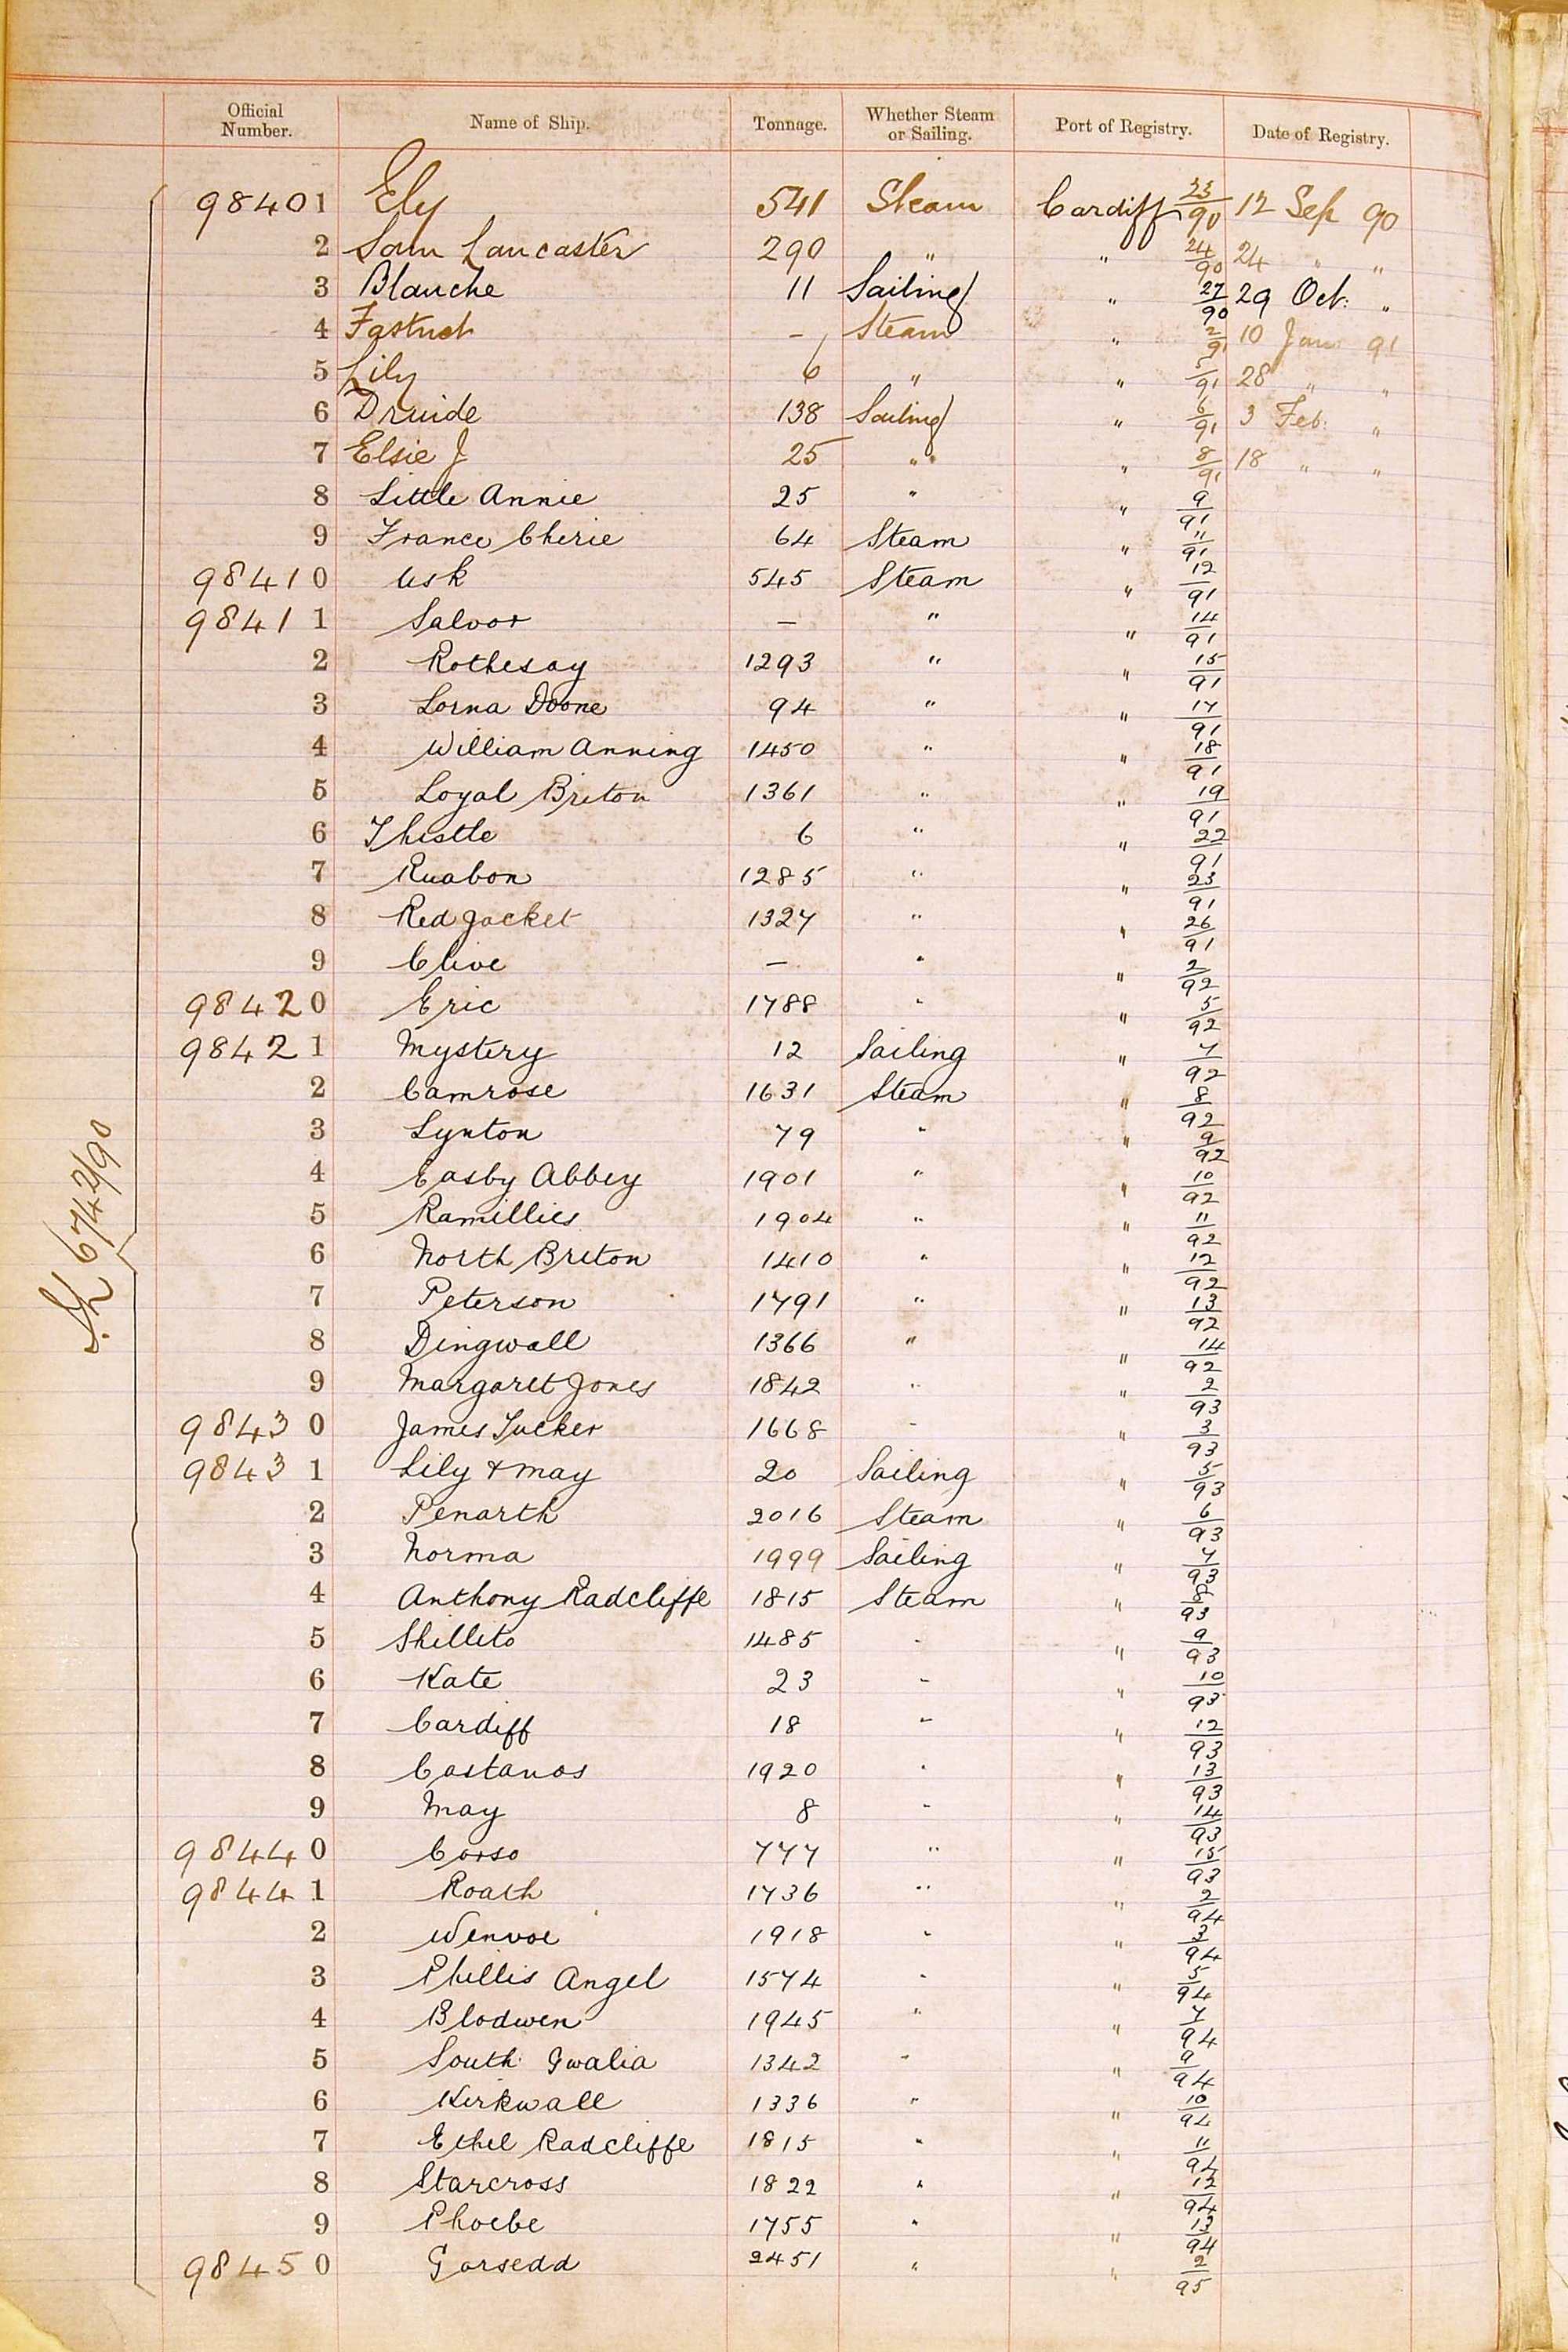 Official Number. Name of Ship. Tonnage. Whether Steam or Sailing. Port of Registry. Date of Registry.
98401 Ely 541 Steam Cardiff 23/90 12 Sep 90
2 Sam Lancaster 290 " " 24/90 24 " "
3 Blanche 11 Sailing " 27/90 29 Oct: "
4 Fastnet - Steam " 2/91 10 Jan 91
5 Lily 6 " " 5/91 28 " "
6 Druide 138 Sailing " 6/91 3 Feb: "
7 Elsie J 25 " " 8/91 18 " "
8 Little Annie 25 " " 9/91
9 France Cherie 64 Steam " 11/91
98410 Usk 545 Steam " 12/91
98411 Salvor - " " 14/91
2 Rothesay 1293 " " 15/91
3 Lorna Doone 94 " " 17/91
4 William Anning 1450 " " 18/91
5 Loyal Briton 1361 " " 19/91
6 Thistle 6 " " 22/91
7 Ruabon 1285 " " 23/91
8 Red Jacket 1327 " " 26/91
9 Clive - " " 2/92
98420 Eric 1788 " " 5/92
98421 Mystery 12 Sailing " 7/92
2 Camrose 1631 Steam " 8/92
3 Lynton 79 " " 9/92
4 Easby Abbey 1901 " " 10/92
5 Ramillies 1904 " " 11/92
6 North Briton 1410 " " 12/92
7 Peterson 1791 " " 13/92
8 Dingwall 1366 " " 14/92
9 Margaret Jones 1842 " " 2/93
98430 James Tucker 1668 " " 3/93
98431 Lily & May 20 Sailing " 5/93
2 Penarth 2016 Steam " 6/93
3 Norma 1999 Sailing " 7/93
4 Anthony Radcliffe 1815 Steam " 8/93
5 Skillito 1485 " " 9/93
6 Kate 23 " " 10/93
7 Cardiff 18 " " 12/93
8 Castanos 1920 " " 13/93
9 May 8 " " 14/93
98440 Corso 777 " " 15/93
98441 Roath 1736 " " 2/94
2 Wenvoe 1918 " " 3/94
3 Phillis Angel 1574 " " 5/94
4 Blodwen 1945 " " 7/94
5 South Gwalia 1342 " " 9/94
6 Kirkwall 1336 " " 10/94
7 Ethel Radcliffe 1815 " " 11/94
8 Starcross 1822 " " 12/94
9 Phoebe 1755 " " 13/94
98450 Gorsedd 2451 " " 2/95
6742/90